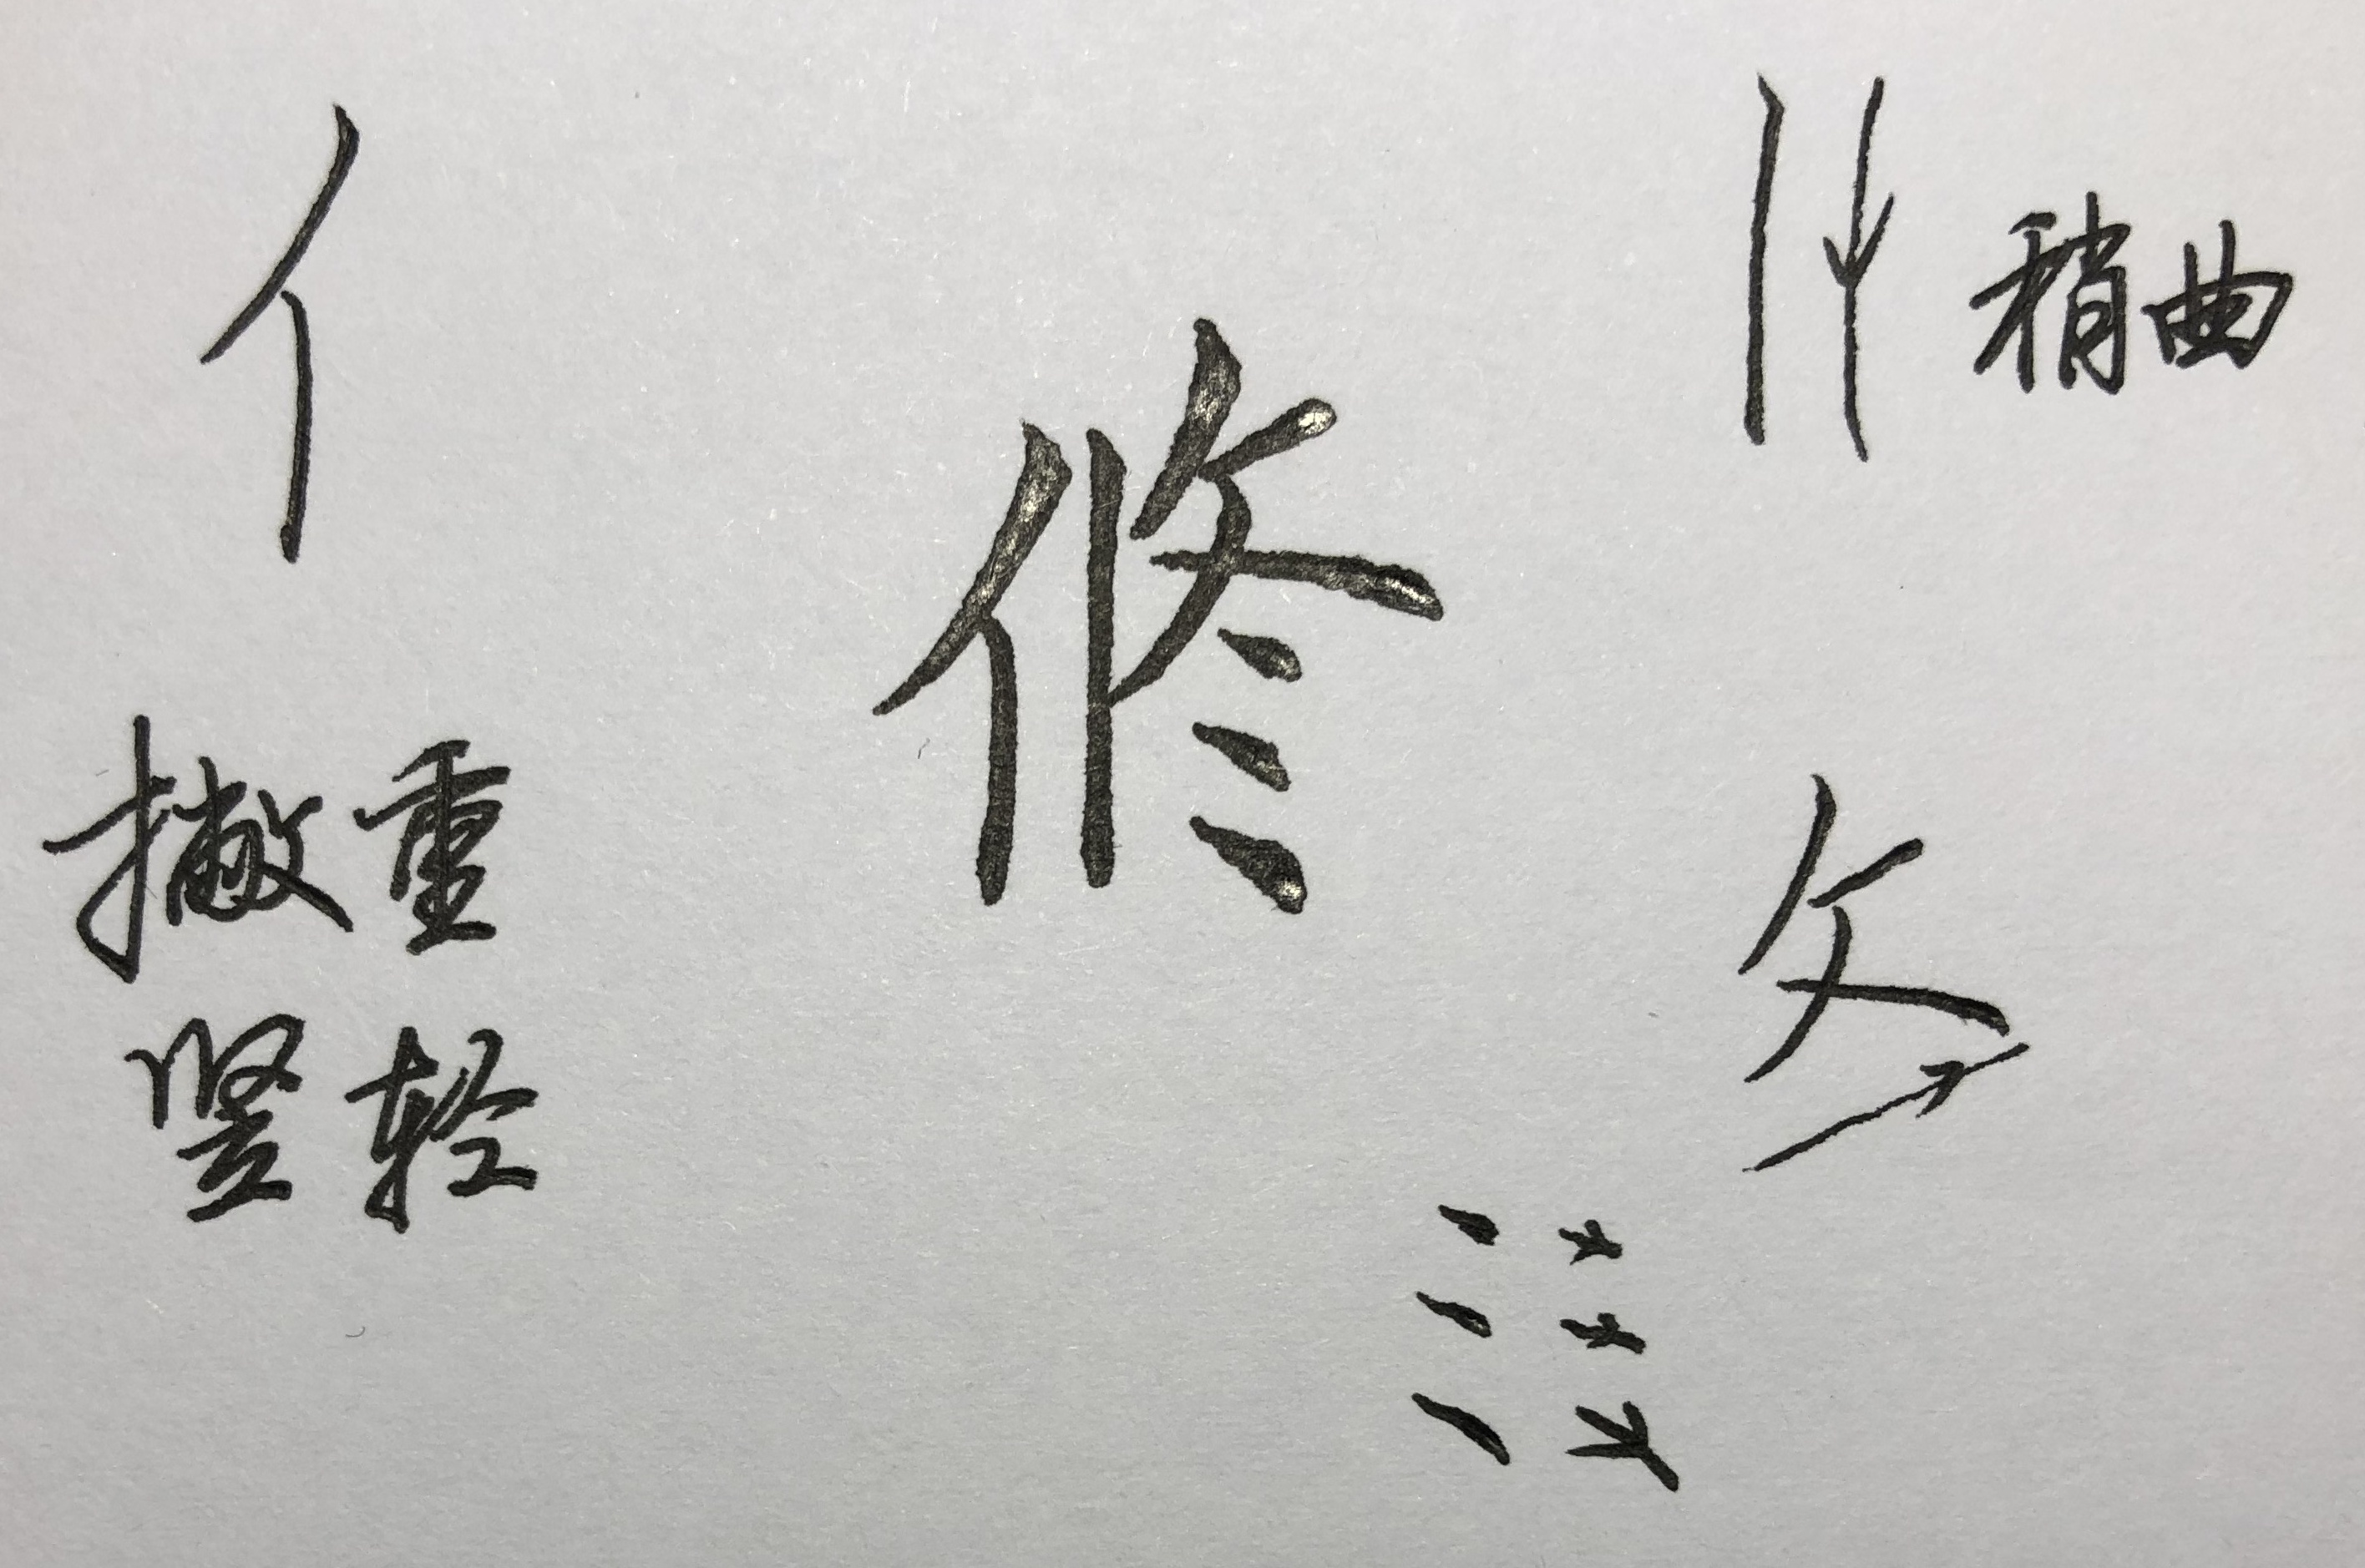 亻
稍曲
修
撇重
攵
竖轻